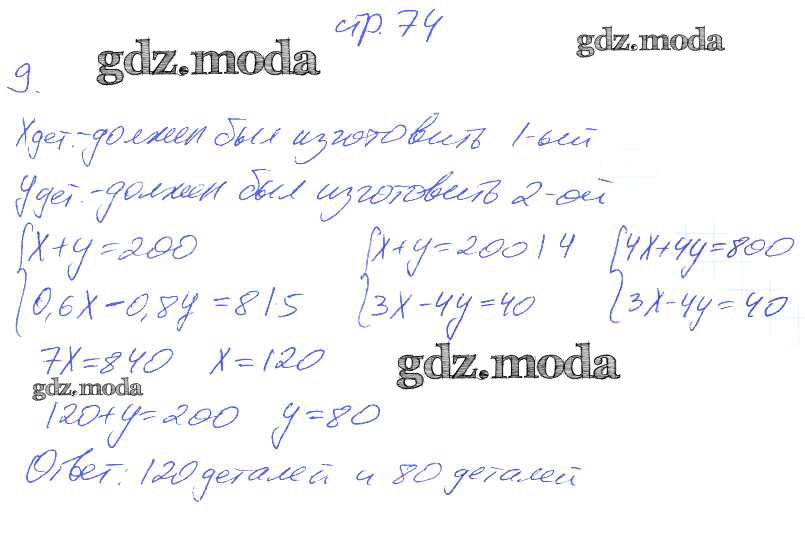 стр. 74
gdz.moda
gdz.moda
9.
X дет. - должен был изготовить 1-ый
У дет. - должен был изготовить 2-ой
{X+y=200 {X+y=200|4 {4X+4y=800
{0,6X-0,8y=8|5 {3X-4y=40 {3X-4y=40
7X=840 X=120
gdz.moda
gdz.moda
120+y=200 y=80
Ответ: 120 деталей и 80 деталей